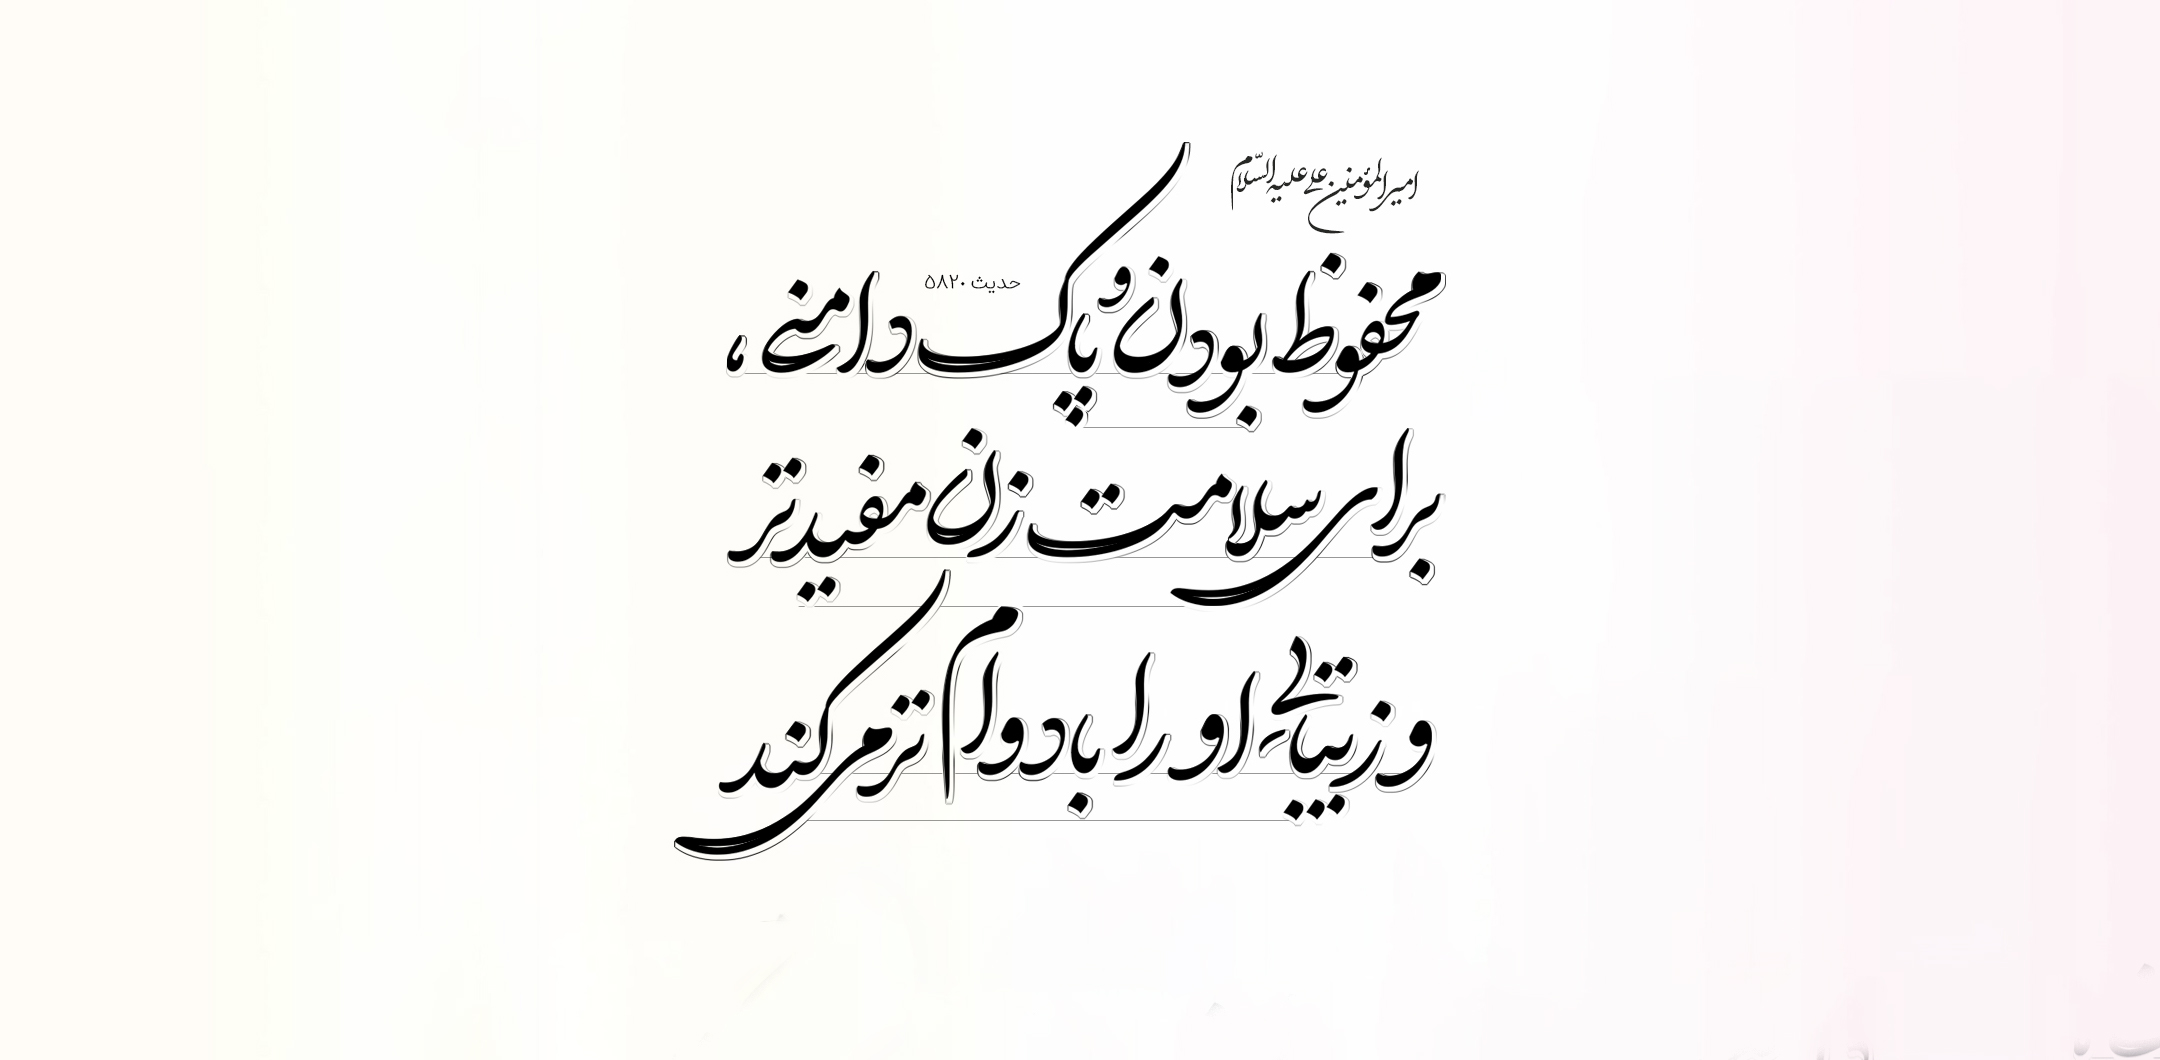 امیرالمؤمنین علی علیه السّلام
حدیث ۵۸۲۰
محفوظ بودن و پاکدامنی،
برای سلامت زن مفیدتر
و زیبایی او را با دوام تر می کند